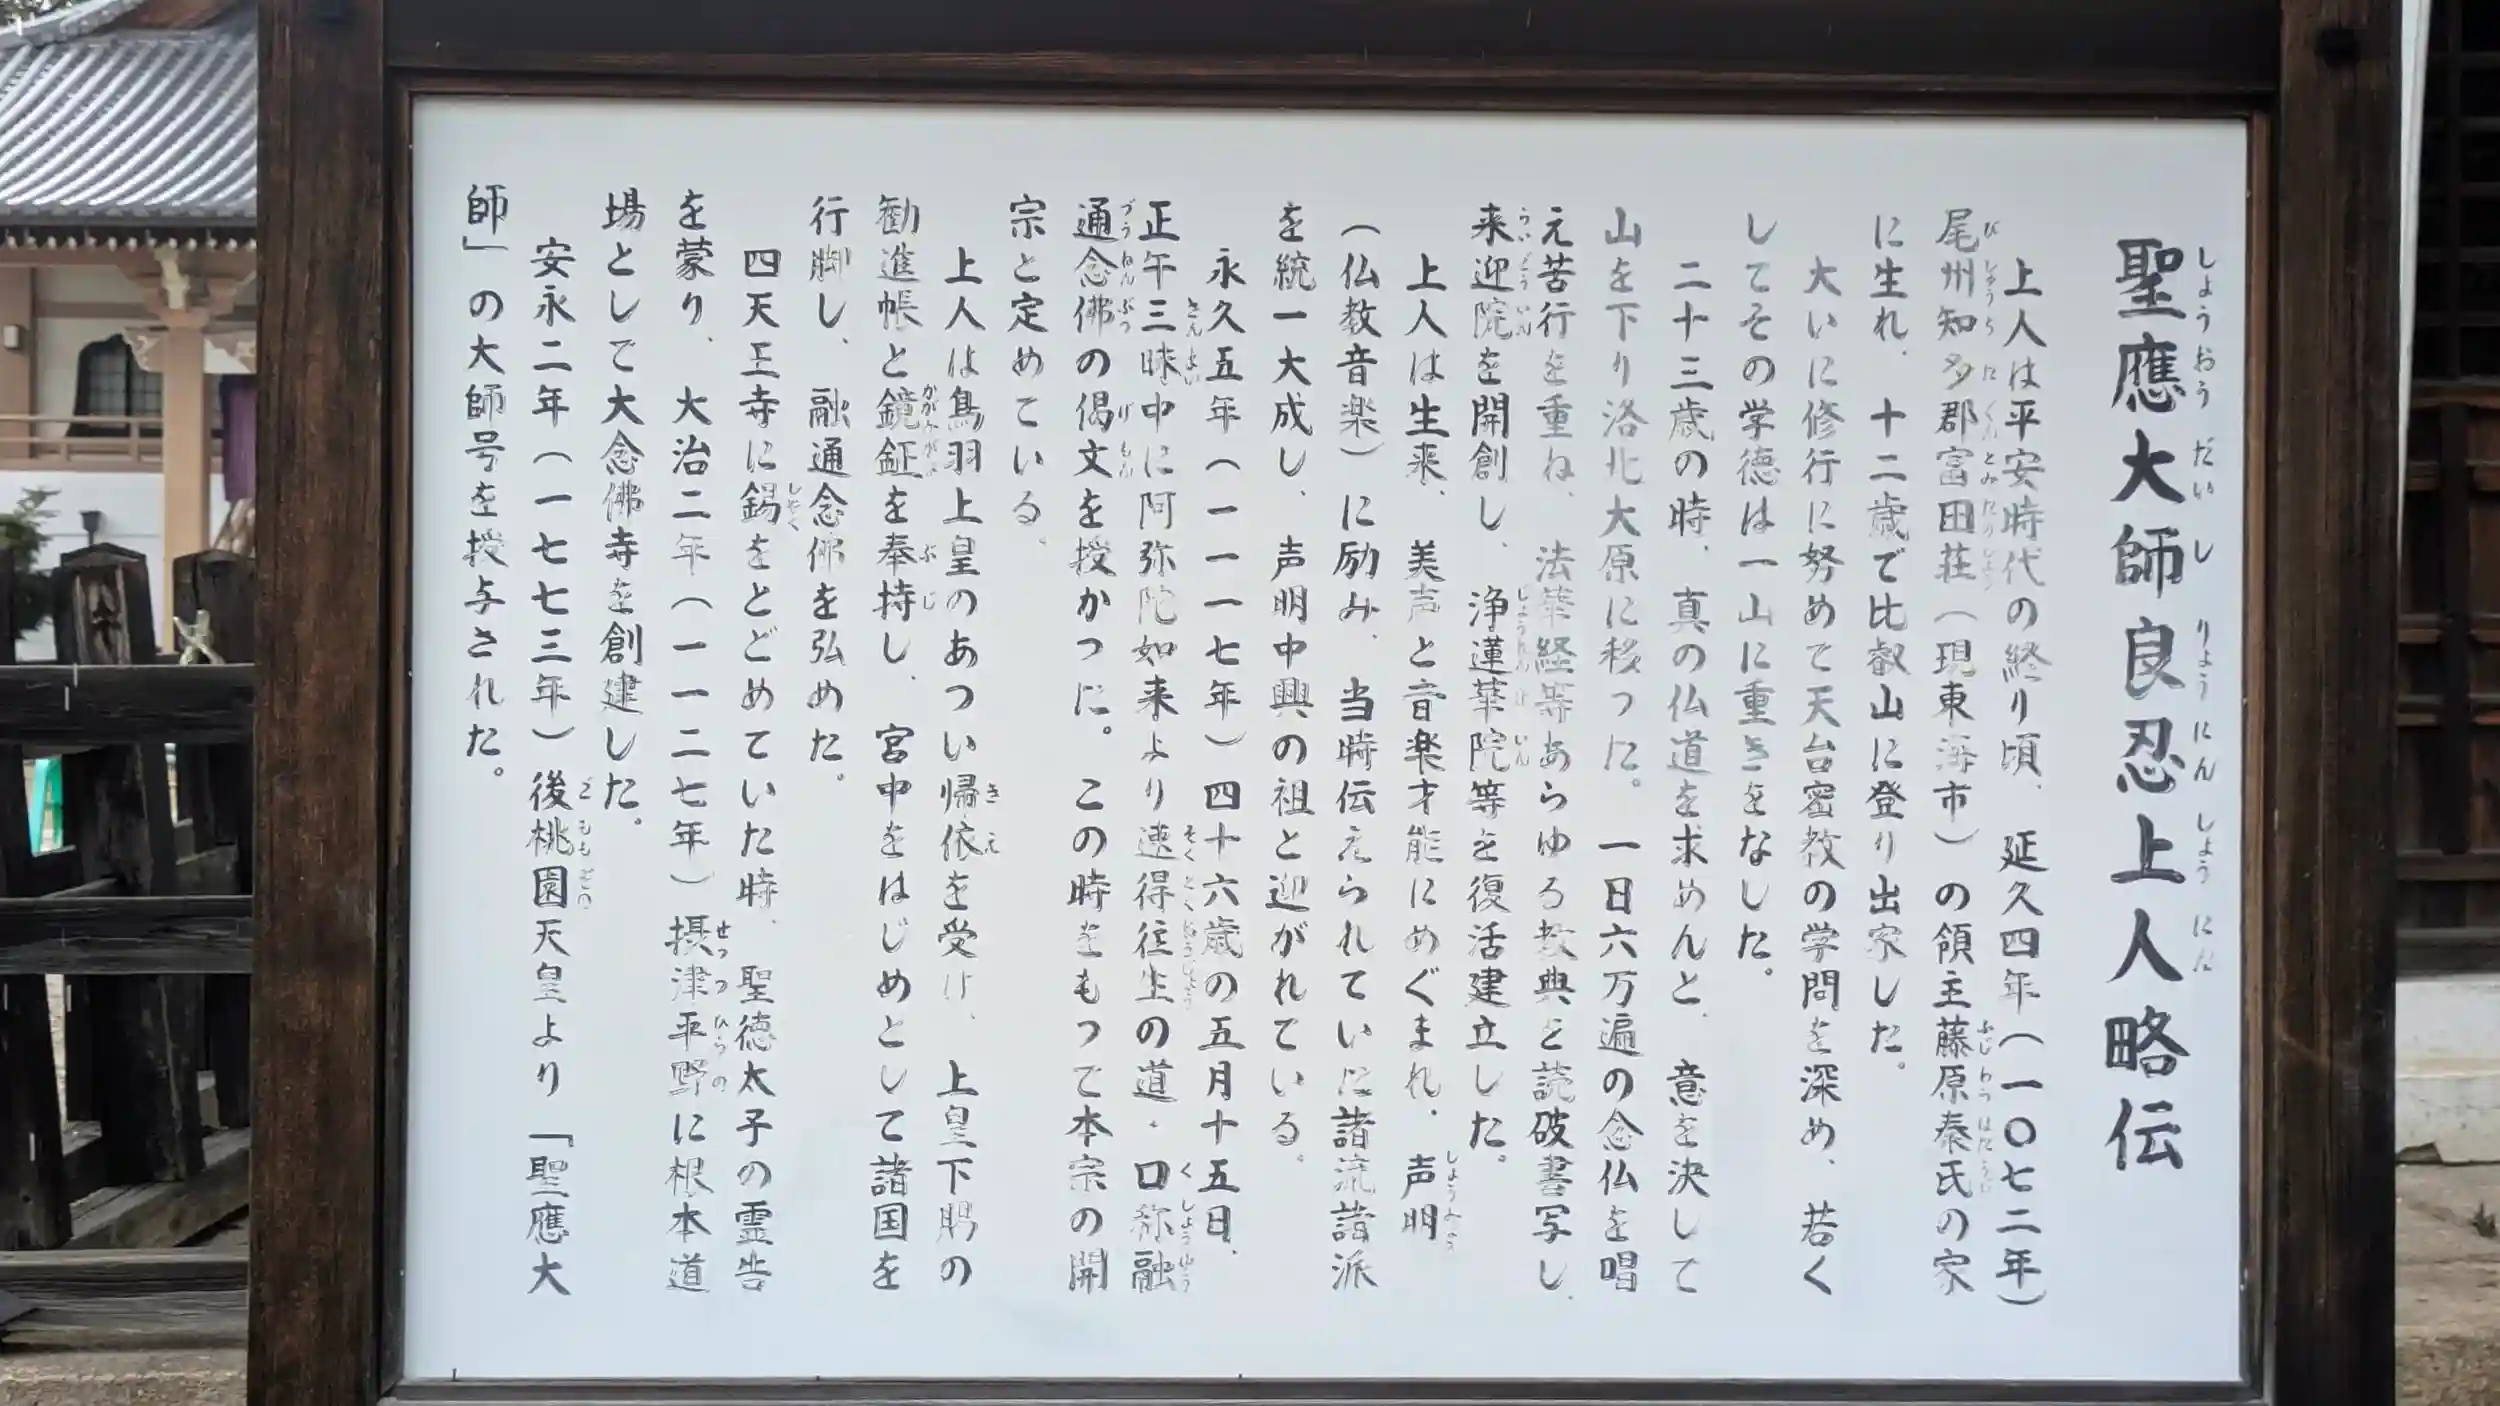 聖應大師良忍上人略伝
上人は平安時代の終り頃、延久四年（一〇七二年）
尾州知多郡富田荘（現東海市）の領主藤原秦氏の家
に生れ、十二歳で比叡山に登り出家した。
大いに修行に努めて天台密教の学問を深め、若く
してその学徳は一山に重きをなした。
二十三歳の時、真の仏道を求めんと、意を決して
山を下り洛北大原に移った。一日六万遍の念仏を唱
え苦行を重ね、法華経等あらゆる教典を読破書写し、
来迎院を開創し、浄蓮華院等を復活建立した。
上人は生来、美声と音楽才能にめぐまれ、声明
（仏教音楽）に励み、当時伝えられていた諸流諸派
を統一大成し、声明中興の祖と迎がれている。
永久五年（一一一七年）四十六歳の五月十五日、
正午三昧中に阿弥陀如来より速得往生の道・口称融
通念佛の偈文を授かった。この時をもって本宗の開
宗と定めている。
上人は鳥羽上皇のあつい帰依を受け、上皇下賜の
勧進帳と鏡鉦を奉持し、宮中をはじめとして諸国を
行脚し、融通念佛を弘めた。
四天王寺に錫をとどめていた時、聖徳太子の霊告
を蒙り、大治二年（一一二七年）摂津平野に根本道
場として大念佛寺を創建した。
安永二年（一七七三年）後桃園天皇より「聖應大
師」の大師号を授与された。